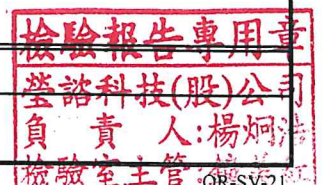 檢驗報告專用章
瑩諮科技(股)公司
負責人:楊炯浩
檢驗室主管:
QR-SV-21